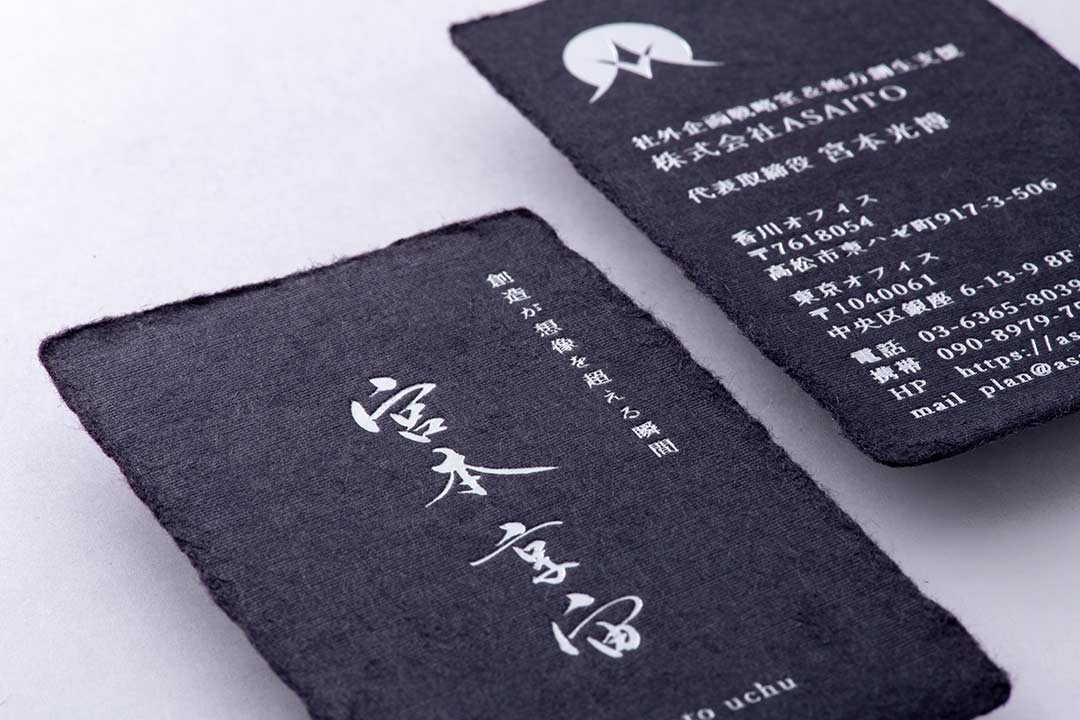 創造が想像を超える瞬間
宮本 享宙
to uchu
社外企画戦略室&地方創生支援
株式会社ASAITO
代表取締役 宮本光博
香川オフィス
〒7618054
高松市東ハゼ町917-3-506
東京オフィス
〒1040061
中央区銀座 6-13-9 8F
電話 03-6365-8039
携帯 090-8979-75
HP https://as
mail plan@as